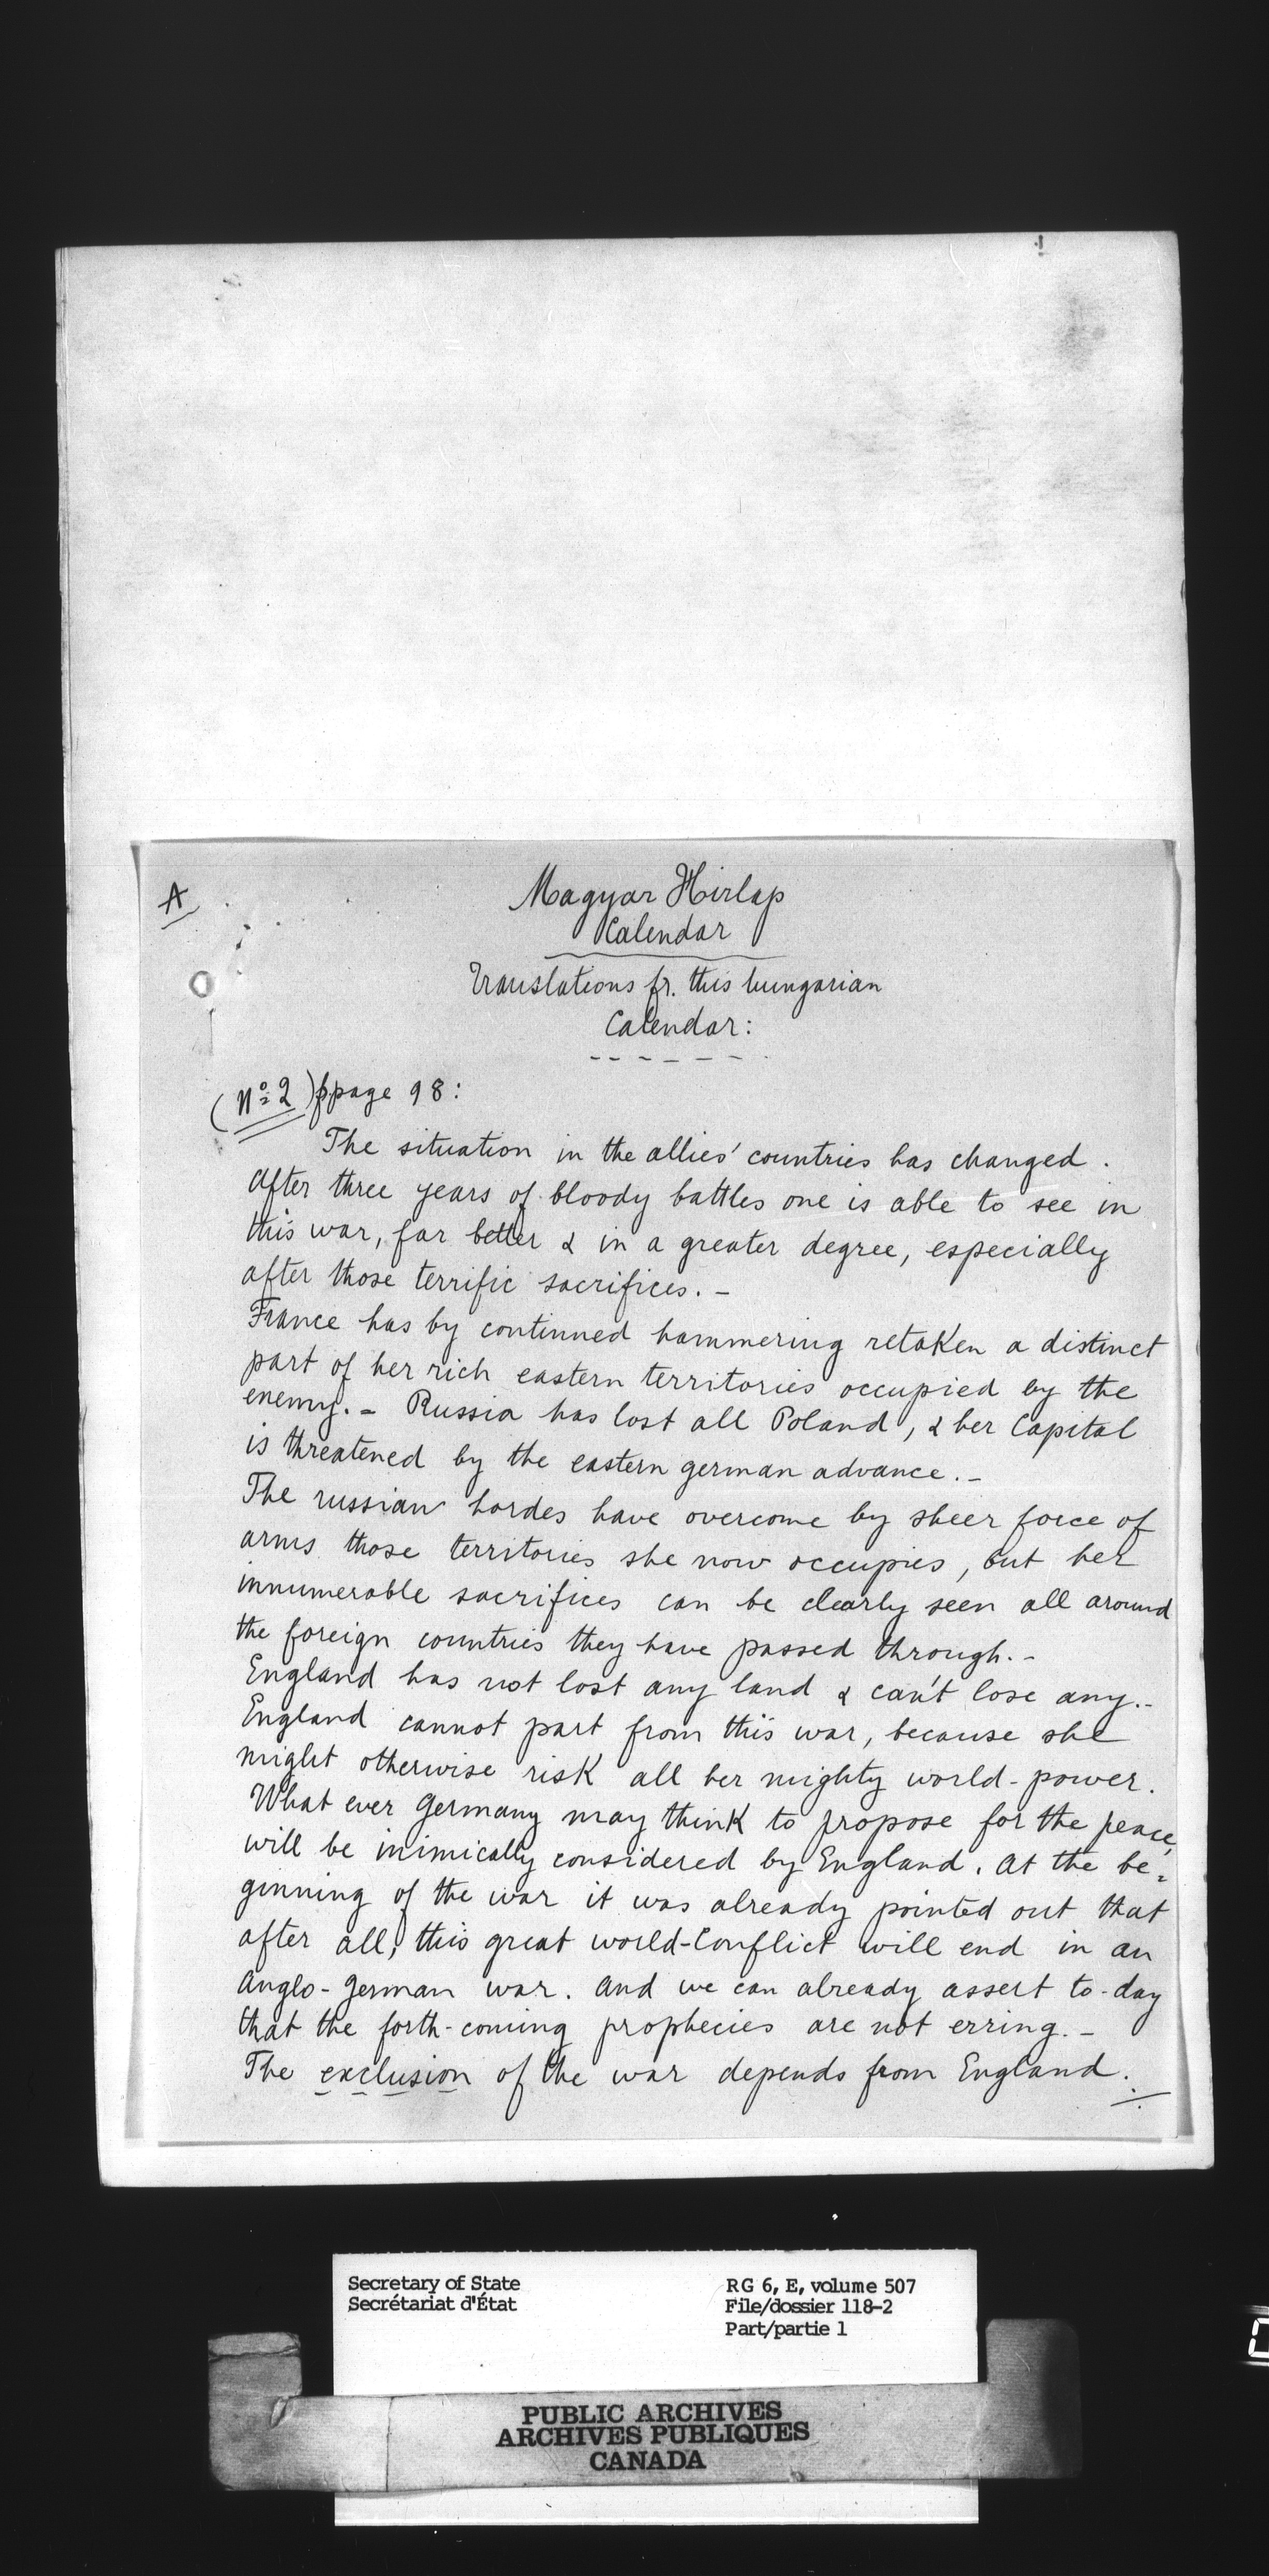 A
Magyar Hirlap
Calendar
Translations fr. this hungarian
Calendar:
(No. 2) page 98:
The situation in the allies' countries has changed.
After three years of bloody battles one is able to see in
this war, far better & in a greater degree, especially
after those terrific sacrifices. -
France has by continued hammering retaken a distinct
part of her rich eastern territories occupied by the
enemy. - Russia has lost all Poland, & her Capital
is threatened by the eastern german advance. -
The russian hordes have overcome by sheer force of
arms those territories she now occupies, but her
innumerable sacrifices can be clearly seen all around
the foreign countries they have passed through. -
England has not lost any land & can't lose any. -
England cannot part from this war, because she
might otherwise risk all her mighty world-power.
What ever Germany may think to propose for the peace,
will be inimically considered by England. At the be=
ginning of the war it was already pointed out that
after all, this great world-Conflict will end in an
Anglo-German war. And we can already assert to-day
that the forth-coming prophecies are not erring. -
The exclusion of the war depends from England.
Secretary of State
Secrétariat d'État
RG 6, E, volume 507
File/dossier 118-2
Part/partie 1
PUBLIC ARCHIVES
ARCHIVES PUBLIQUES
CANADA